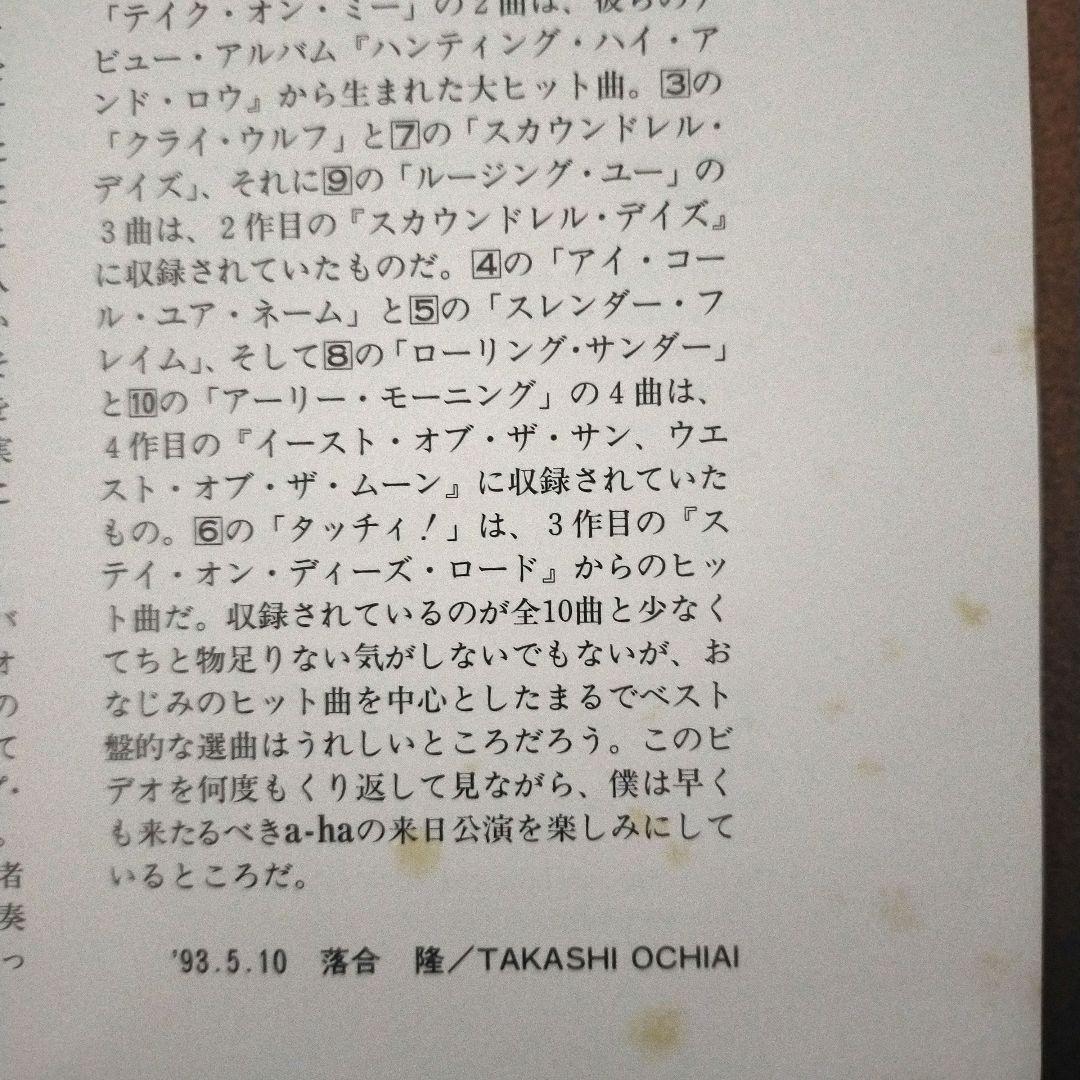 「テイク・オン・ミー」の2曲は、彼らのデ
ビュー・アルバム『ハンティング・ハイ・ア
ンド・ロウ』から生まれた大ヒット曲。3の
「クライ・ウルフ」と7の「スカウンドレル・
デイズ」、それに9の「ルージング・ユー」の
3曲は、2作目の『スカウンドレル・デイズ』
に収録されていたものだ。4の「アイ・コー
ル・ユア・ネーム」と5の「スレンダー・フ
レイム」、そして8の「ローリング・サンダー」
と10の「アーリー・モーニング」の4曲は、
4作目の『イースト・オブ・ザ・サン、ウエ
スト・オブ・ザ・ムーン』に収録されていた
もの。6の「タッチィ!」は、3作目の『ス
テイ・オン・ディーズ・ロード』からのヒッ
ト曲だ。収録されているのが全10曲と少なく
てちと物足りない気がしないでもないが、お
なじみのヒット曲を中心としたまるでベスト
盤的な選曲はうれしいところだろう。このビ
デオを何度もくり返して見ながら、僕は早く
も来たるべきa-haの来日公演を楽しみにして
いるところだ。
'93.5.10 落合 隆/TAKASHI OCHIAI